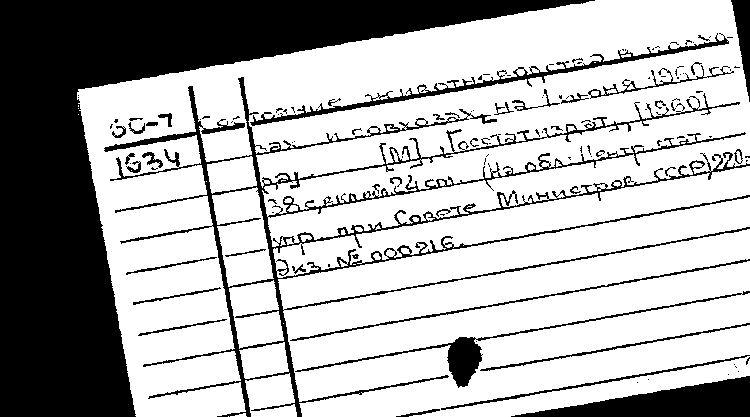 60-7 Состояние животноводства в колхо-
1634 зах и совхозах на 1 июня 1960 го-
да. [М], „Госстатиздат", [1960]
38 с, вкл. обл. 24 cm. (На обл: Центр. стат.
упр. при Совете Министров СССР) 220э
Экз. № 000216.